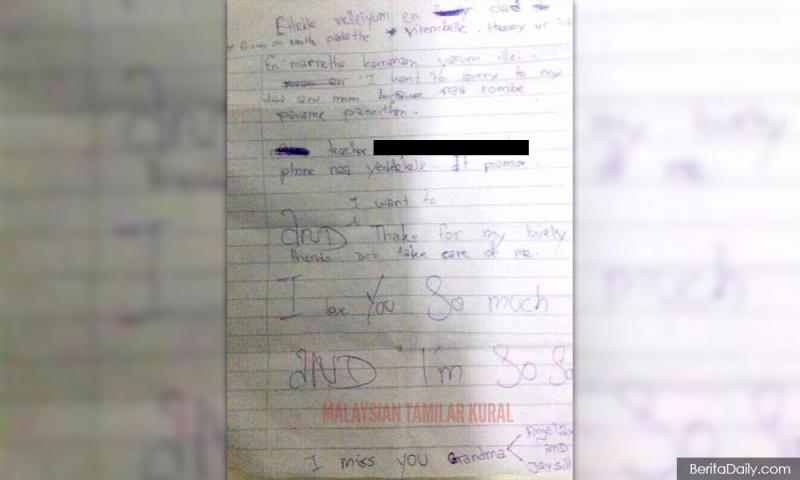 Ettable velleiyum en dad
vîrembelle. Happy ur
En marnetha karranam yarum ille.
I want to sorry to my
dad and mom because naa rombe
pavame pannithen.
teacher
phone naa yeddekele. It promise.
I want to
AND Thaks for my lovely
friends take care of me.
I love You So much
AND I'm So
MALAYSIAN TAMILAR KURAL
I miss YOU Grandma
AND
BeritaDaily.com